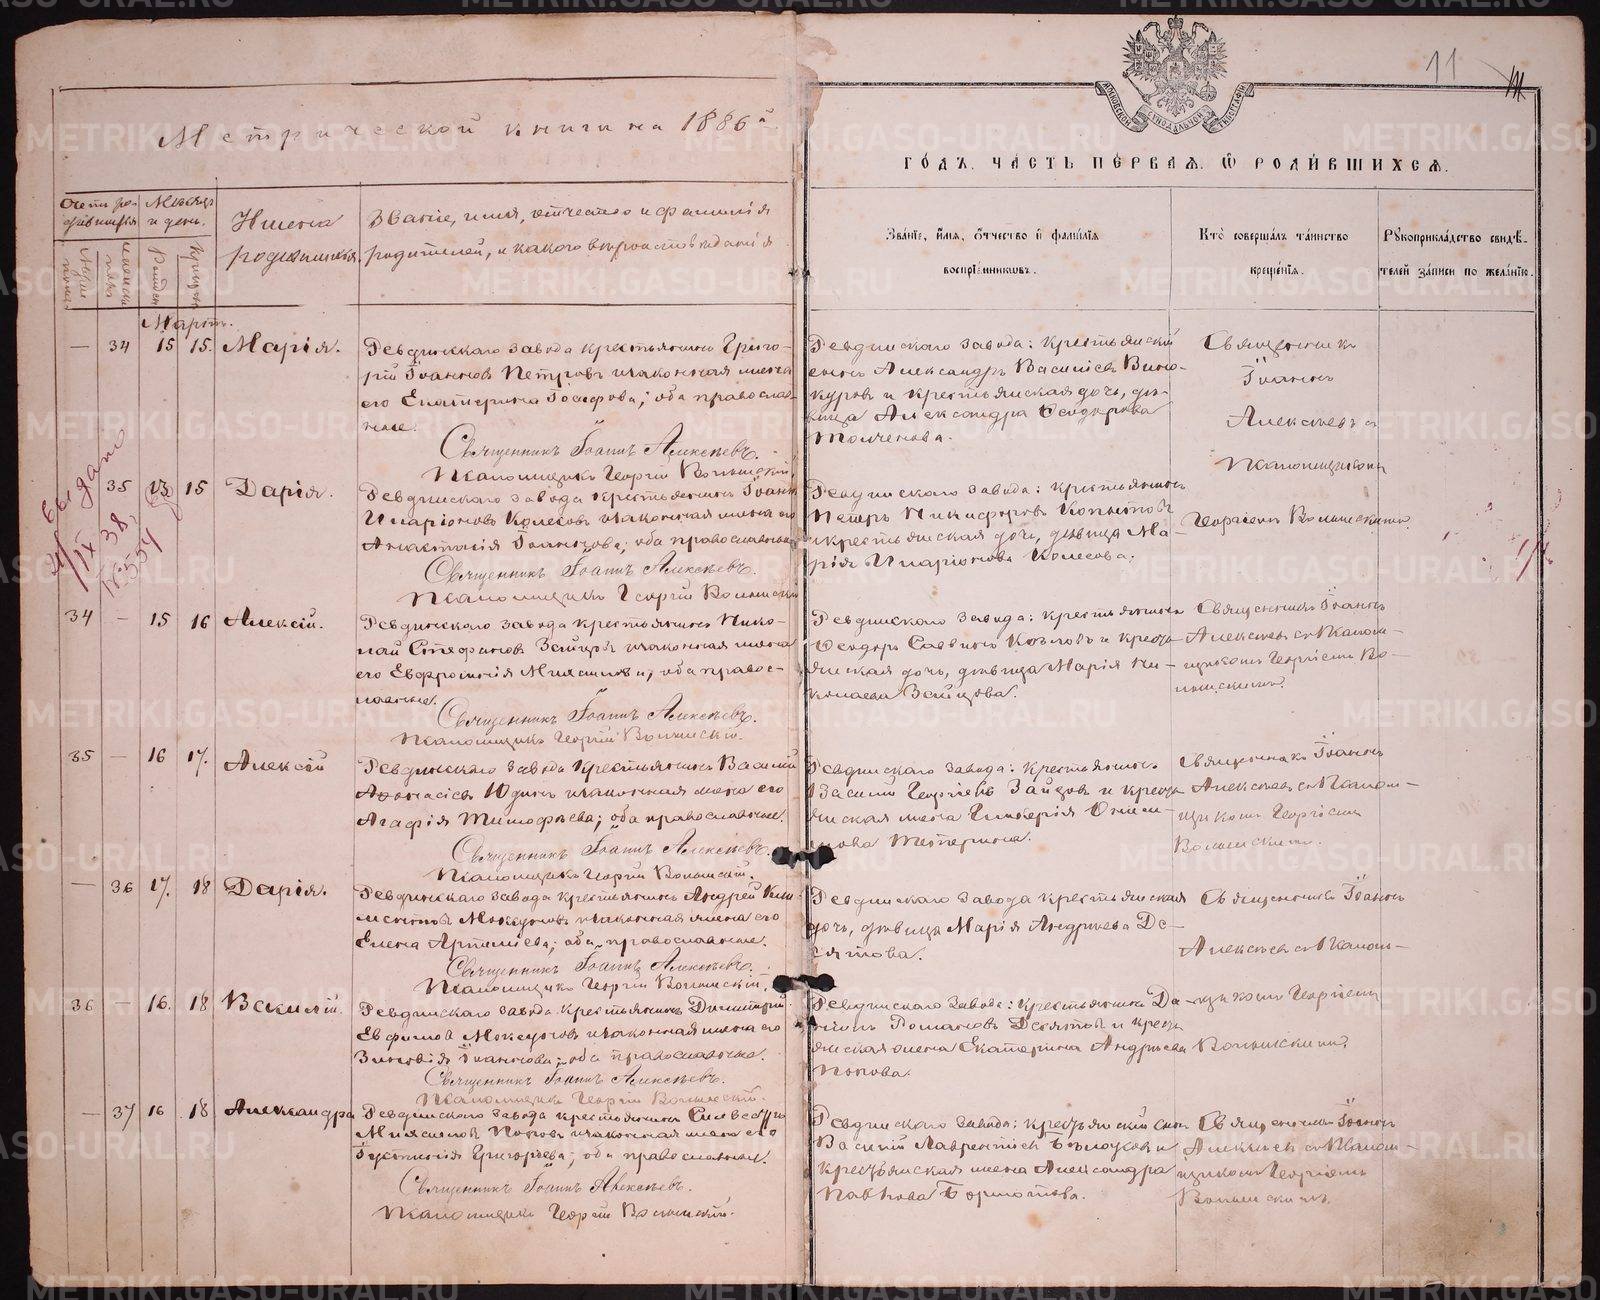 11
Метрической книги на 1886й
ГО́ДЪ, ЧА́СТЬ ПЕ́РВАЯ, Ѡ РОДИ́ВШИХСЯ.
Счетъ ро-
дившихся
Мѣсяцъ
и день.
Имена
родившихся.
Званіе, имя, отчество и фамилія
родителей, и какого вѣроисповѣданія
Зва́ніе, и́мя, ѻ́тчество и҆ фами́лія
воспріе́мниковъ.
Кто̀ соверша́лъ та́инство
креще́нія.
Рꙋкоприкла́дство свидѣ́-
телей за́писи по жела́нію.
Мартъ.
— 34 15 15. Марія.
Ревдинскаго завода крестьянинъ Григо-
рій Іоанновъ Петровъ и законная жена
его Екатерина Іосифова; оба православ-
ные.
Священникъ Іоаннъ Алексѣевъ.
Псаломщикъ Георгій Волынскій.
Ревдинскаго завода: крестьянскій
сынъ Александръ Васильевъ Вино-
куровъ и крестьянская дочь, дѣ-
вица Александра Ѳеодорова
Толченова.
Священникъ
Іоаннъ
Алексѣевъ съ
Псаломщикомъ
Георгіемъ Волынскимъ.
Выдано
IX 38,
№554
35 13 15 Дарія.
Ревдинскаго завода крестьянинъ Іоаннъ
Иларіоновъ Колесовъ и законная жена его
Анастасія Іоаннова; оба православные
Священникъ Іоаннъ Алексѣевъ.
Псаломщикъ Георгій Волынскій
Ревдинскаго завода: крестьянинъ
Петръ Никифоровъ Копытовъ
и крестьянская дочь, дѣвица Ма-
рія Иларіонова Колесова.
34 — 15 16 Алексій.
Ревдинскаго завода крестьянинъ Нико-
лай Стефановъ Зайцевъ и законная жена
его Евфросинія; оба правос-
лавные.
Священникъ Іоаннъ Алексѣевъ.
Псаломщикъ Георгій Волынскій.
Ревдинскаго завода: крестьянинъ
Ѳеодоръ Саввинъ Козловъ и кресть-
янская дочь, дѣвица Марія Ни-
колаева Зайцова.
Священникъ Іоаннъ
Алексѣевъ съ Псалом-
щикомъ Георгіемъ Во-
лынскимъ.
35 — 16 17. Алексій
Ревдинскаго завода крестьянинъ Василій
Аѳанасіевъ Юдинъ и законная жена его
Агафія Тимофѣева; оба православные.
Священникъ Іоаннъ Алексѣевъ.
Псаломщикъ Георгій Волынскій.
Ревдинскаго завода: крестьянинъ
Василій Георгіевъ Зайцовъ и кресть-
янская жена Гликерія Они-
мова Тетерина.
Священникъ Іоаннъ
Алексѣевъ съ Псалом-
щикомъ Георгіемъ
Волынскимъ.
— 36 17. 18 Дарія.
Ревдинскаго завода крестьянинъ Андрей Кли-
ментовъ Мокеуновъ и законная жена его
Елена Артеміева; оба православные.
Священникъ Іоаннъ Алексѣевъ.
Псаломщикъ Георгій Волынскій.
Ревдинскаго завода крестьянская
дочь, дѣвица Марія Андреева Де-
сятова.
Священникъ Іоаннъ
Алексѣевъ съ Псалом-
щикомъ Георгіемъ
Волынскимъ.
36 — 16. 18 Василій.
Ревдинскаго завода крестьянинъ Димитрій
Ефимовъ и законная жена его
Зиновія Іоаннова; оба православные.
Священникъ Іоаннъ Алексѣевъ.
Псаломщикъ Георгій Волынскій.
Ревдинскаго завода: крестьянинъ Да-
ніилъ Романовъ Десятовъ и кресть-
янская жена Екатерина Андреева
Попова.
— 37 16 18 Александра
Ревдинскаго завода крестьянинъ Сильвестръ
Попов и законная жена его
Іустинія Григорьева; оба православные.
Священникъ Іоаннъ Алексѣевъ.
Псаломщикъ Георгій Волынскій.
Ревдинскаго завода: крестьянскій сынъ
Василій Лаврентіевъ и
крестьянская жена Александра
Павлова.
Священникъ Іоаннъ
Алексѣевъ съ Псалом-
щикомъ Георгіемъ
Волынскимъ.
METRIKI.GASO-URAL.RU